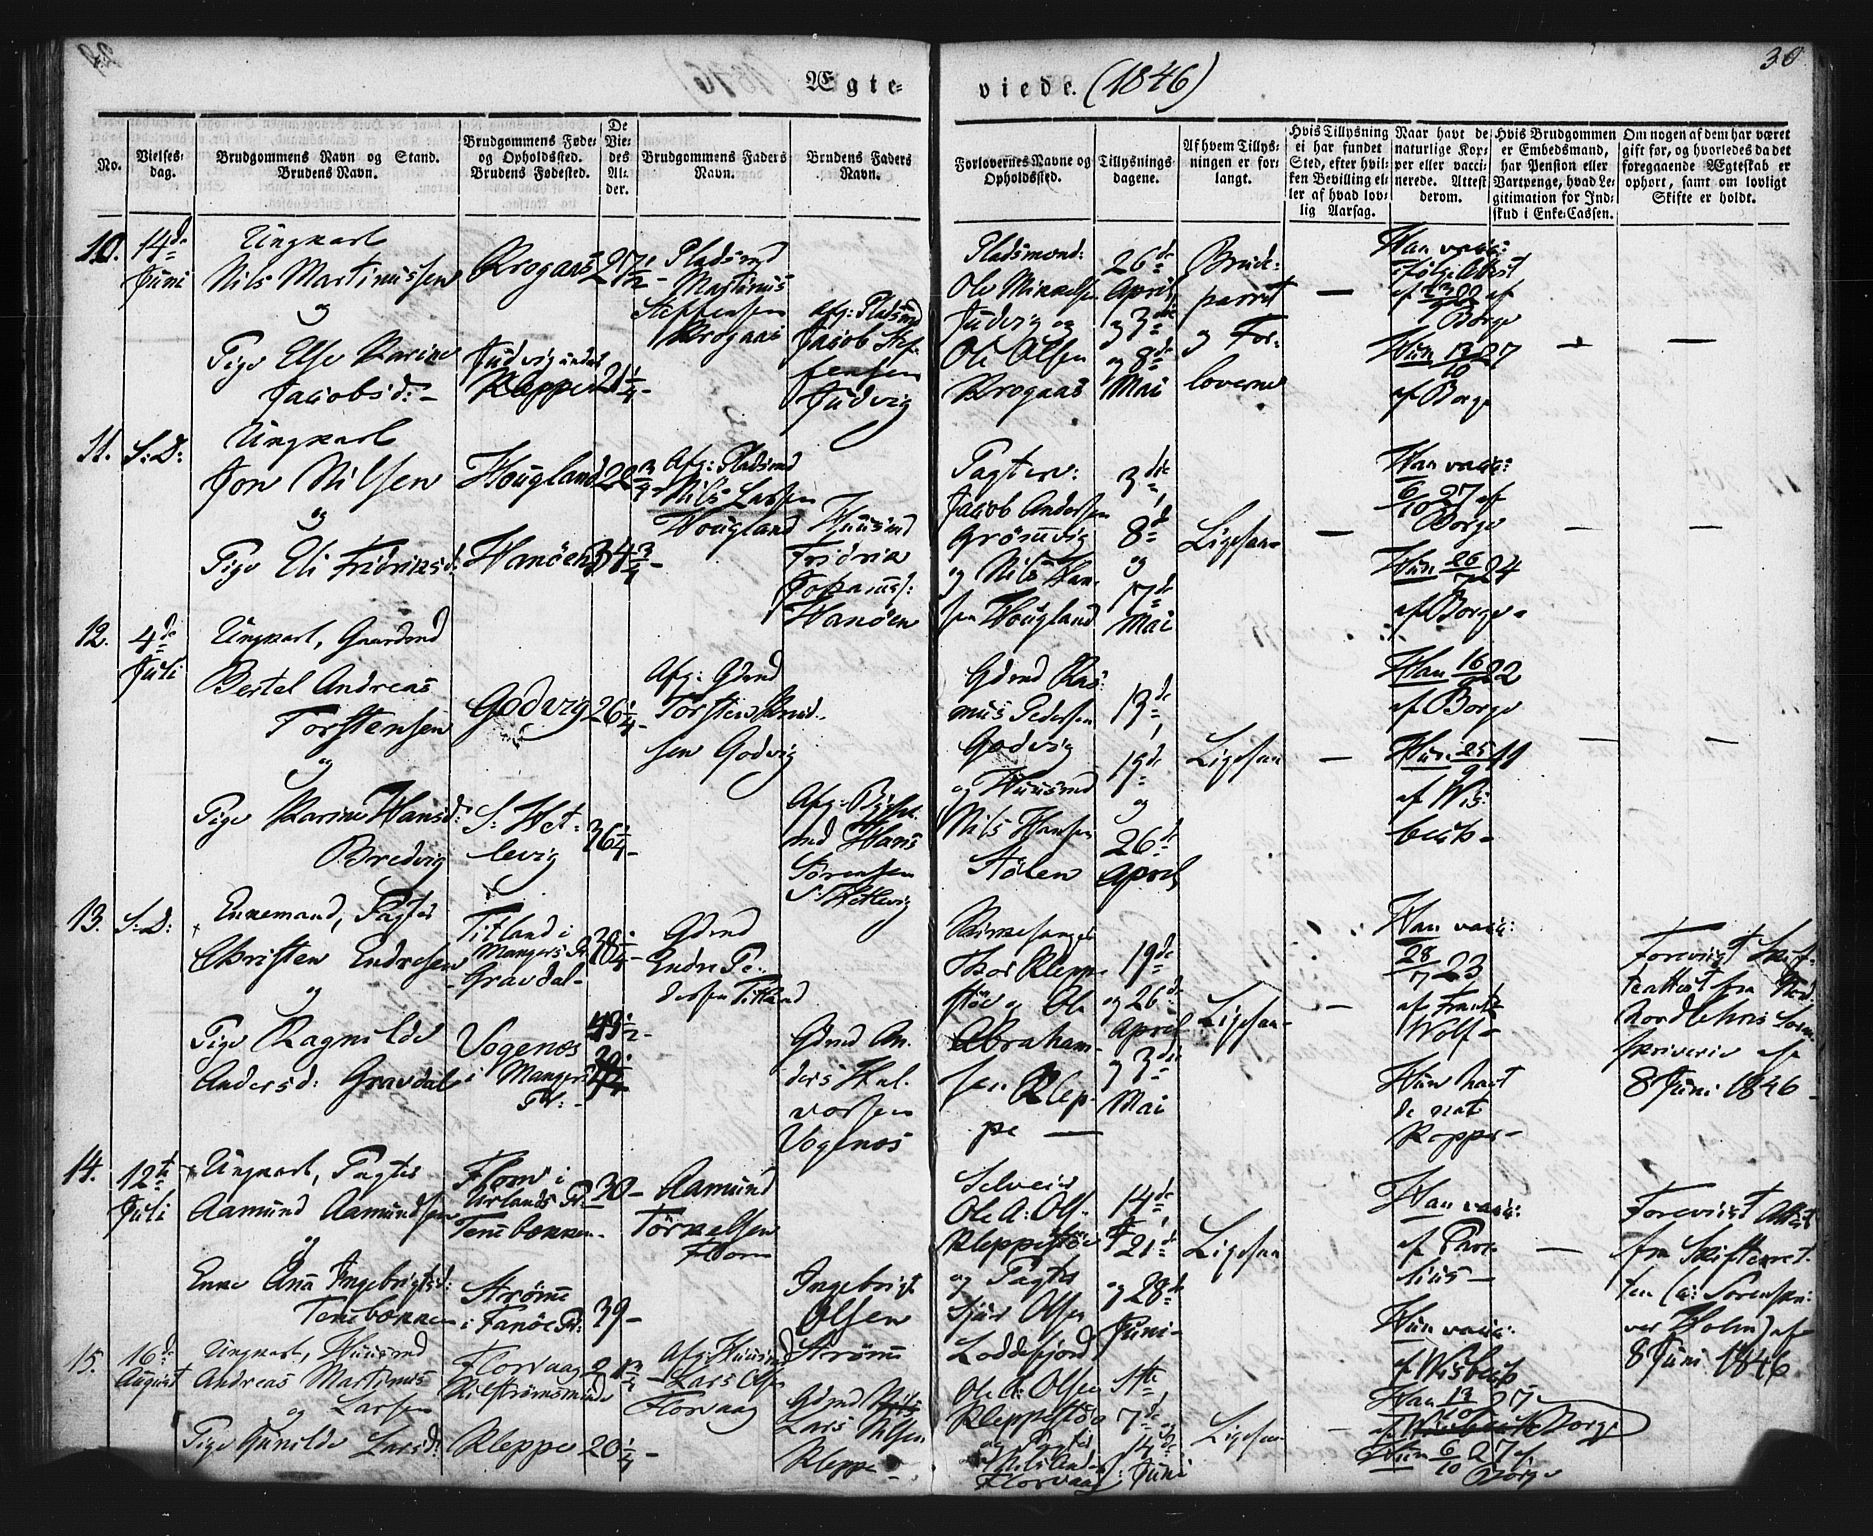 30
Ægte-
viede. (1846)
No.
Vielses-
dag.
Brudgommens Navn og Stand.
Brudens Navn.
Brudgommens Føde-
og Opholdssted.
Brudens Fødested.
De
Vie-
des
Al-
der.
Brudgommens Faders
Navn.
Brudens Faders
Navn.
Forlovernes Navne og
Opholdssted.
Tillysnings-
dagene.
Af hvem Tillys-
ningen er for-
langt.
Hvis Tillysning
ei har fundet
Sted, efter hvil-
ken Bevilling el-
ler af hvad lov-
lig Aarsag.
Naar havt de
naturlige Kop-
per eller vacci-
nerede. Attest
derom.
Hvis Brudgommen
er Embedsmand,
har Pension eller
Vartpenge, hvad Le-
gitimation for Ind-
skud i Enke-Cassen.
Om nogen af dem har været
gift for, og hvorledes da det
foregaaende Ægteskab er
ophørt, samt om lovligt
Skifte er holdt.
10.
14de
Juni
Ungkarl
Nils Martinussen
og
Pige Else Karine
Jacobsd:
Krogaas
Judvig
Kleppe
27 1/2
21 1/4
Pladsmd
Martinus
Steffensen
Krogaas
Afg: Pladsmd
Jacob Stef-
fensen
Judvig
Pladsmænd:
Ole Mikkelsen
Judvig og
Ole Olsen
Krogaas
26de
April,
3die
og 8de
Mai
Brude-
parret
og For-
loverne
—
Han vacc:
ifølge Attest
af
Borge
Hun 13/10 27
af Borge
—
—
11.
S: D:
Ungkarl
Jon Nilsen
og
Pige Eli Fridriksd:
Hougland
Hanøen
22 3/4
34 3/4
Afg: Pladsmd
Nils Larsen
Hougland
Huusmd
Fridrik
Johannes:
Hanøen
Pagtern:
Jacob Andersen
Grønvig
og Nils Han-
sen Hougland
3die,
8de
og
17de
Mai
Ligesaa
—
Han vacc:
6/10 27 af
Borge
Hun 26/7 24
af Borge
—
—
12.
4de
Juli
Ungkarl, Gaardmd
Bertel Andreas
Torstensen
og
Pige Karine Hansd:
Bredvig
Godvig
S: Het-
levig
26 1/4
36 1/4
Afg: Gdmd
Torsten Knud-
sen Godvig
Afg: Bygsel-
md Hans
Sørensen
S: Hetlevig
Gdmd Ras-
mus Pedersen
Godvig
og Huusmd
Nils Hansen
Stølen
13de,
19de
og
26de
April
Ligesaa
—
Han 16/9 22
af Borge
Hun 25/9 11
af Wis-
beck
—
—
13.
S: D:
Enkemand, Pagter
Christen Endresen
og
Pige Ragnilde
Andersd: Gravdal
Titland i
Mangers Pr
Gravdal
Vogenæs
i Mangers
Pr:
38 1/4
Gdmd
Endre Pe-
dersen Titland
Gdmd An-
ders Hal-
vorsen
Vogenæs
Kirkesanger
Thor Kleppe-
støe og Ole
Abraham-
sen Klep-
pe —
19de
og 26de
April
og 3die
Mai
Ligesaa
—
Han vacc:
28/7 23
af Frantz
Wolf
Hun havt
de nat
Kopper
Foreviist Skif-
teattest fra
Nordlehns Soren-
skriverie af
8 Juni 1846
14.
12te
Juli
Ungkarl, Pagter
Aamund Aamundsen
og
Enke Ana Ingebrigtsd:
Tenebekken
Flom i
Urlands Pr
Tenebekken
Strømme
i Fanøe Pr:
30
39
Aamund
Tørkelsen
Flom
Ingebrigt
Olsen
Strømme
Selveier
Ole A: Ols-
Kleppestøe
og Pagter
Sjur Olsen
Loddefjord
14de,
21de
og 28de
Juni
Ligesaa
Han vacc:
af
Hun vacc:
af Wisbeck
—
Foreviist Attest
fra Skifteret-
ten (a: Sorenskri-
ver Holm) af
8 Juni 1846
15.
16de
August
Ungkarl, Huusmd
Andreas Martinus
og Larsen
Pige Gunilde Larsd:
Florvaag
Kleppe
20 1/4
Afg: Huusmd
Lars Olsen
Florvaag
Gdmd
Lars Nilsen
Kleppe
Ole A: Olsen
Kleppestøe
og Pagter
Nils Anders:
Florvaag
1ste,
7de og
14de
Juni
Ligesaa
—
Han 13/10 27
af Borge
Hun 6/10 27 af
Borge